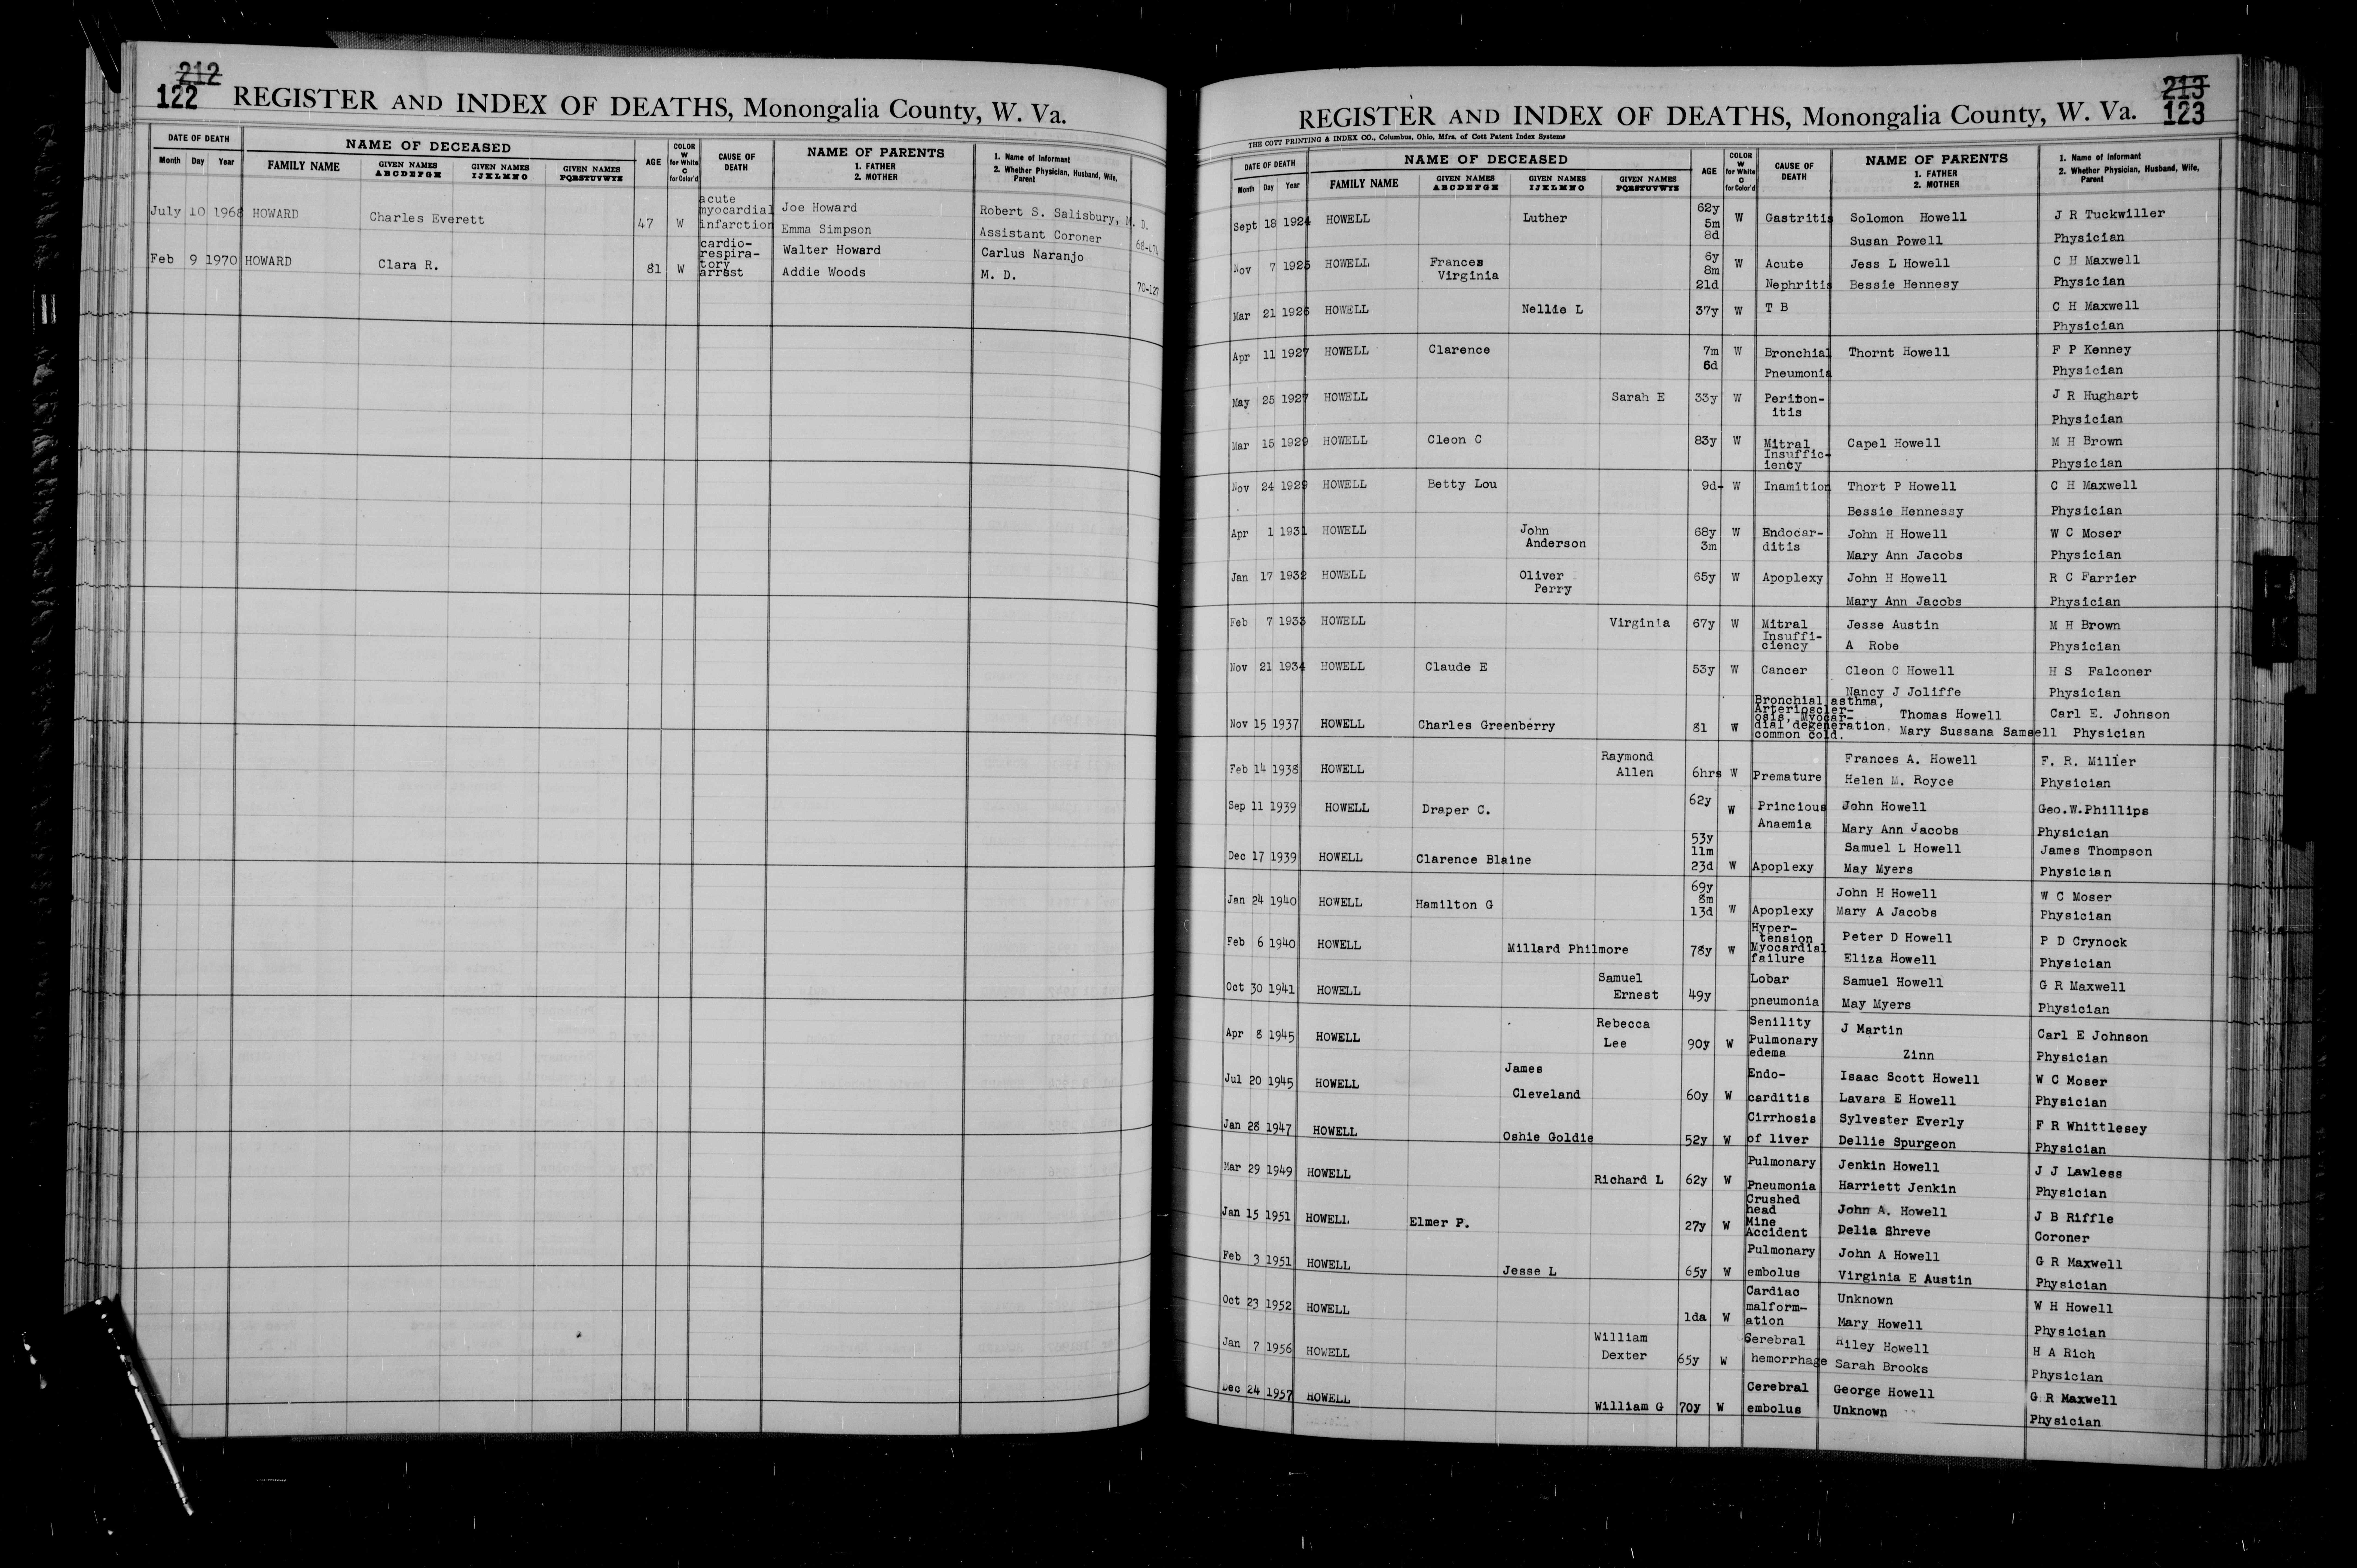 212
122 REGISTER AND INDEX OF DEATHS, Monongalia County, W. Va.
DATE OF DEATH NAME OF DECEASED AGE COLOR W for White C for Color'd CAUSE OF DEATH NAME OF PARENTS 1. FATHER 2. MOTHER 1. Name of Informant 2. Whether Physician, Husband, Wife, Parent
Month Day Year FAMILY NAME GIVEN NAMES ABCDEFGH GIVEN NAMES IJKLMNO GIVEN NAMES PQRSTUVWYZ
July 10 1968 HOWARD Charles Everett 47 W acute myocardial infarction Joe Howard Robert S. Salisbury, M. D.
Emma Simpson Assistant Coroner
Feb 9 1970 HOWARD Clara R. 81 W cardio-respira-tory arrest Walter Howard Carlus Naranjo
Addie Woods M. D. 70-127
213
REGISTER AND INDEX OF DEATHS, Monongalia County, W. Va. 123
THE COTT PRINTING & INDEX CO., Columbus, Ohio, Mfrs. of Cott Patent Index Systems
DATE OF DEATH NAME OF DECEASED AGE COLOR W for White C for Color'd CAUSE OF DEATH NAME OF PARENTS 1. FATHER 2. MOTHER 1. Name of Informant 2. Whether Physician, Husband, Wife, Parent
Month Day Year FAMILY NAME GIVEN NAMES ABCDEFGH GIVEN NAMES IJKLMNO GIVEN NAMES PQRSTUVWYZ
Sept 18 1924 HOWELL Luther 62y 5m 8d W Gastritis Solomon Howell J R Tuckwiller
Susan Powell Physician
Nov 7 1925 HOWELL Frances Virginia 6y 8m 21d W Acute Nephritis Jess L Howell C H Maxwell
Bessie Hennesy Physician
Mar 21 1926 HOWELL Nellie L 37y W T B C H Maxwell
Physician
Apr 11 1927 HOWELL Clarence 7m 6d W Bronchial Pneumonia Thornt Howell F P Kenney
Physician
May 25 1927 HOWELL Sarah E 33y W Periton-itis J R Hughart
Physician
Mar 15 1929 HOWELL Cleon C 83y W Mitral Insuffic-iency Capel Howell M H Brown
Physician
Nov 24 1929 HOWELL Betty Lou 9d W Inamition Thort P Howell C H Maxwell
Bessie Hennessy Physician
Apr 1 1931 HOWELL John Anderson 68y 3m W Endocar-ditis John H Howell W C Moser
Mary Ann Jacobs Physician
Jan 17 1932 HOWELL Oliver Perry 65y W Apoplexy John H Howell R C Farrier
Mary Ann Jacobs Physician
Feb 7 1933 HOWELL Virginia 67y W Mitral Insuffi-ciency Jesse Austin M H Brown
A Robe Physician
Nov 21 1934 HOWELL Claude E 53y W Cancer Cleon C Howell H S Falconer
Nancy J Joliffe Physician
Nov 15 1937 HOWELL Charles Greenberry 81 W Bronchial asthma, Arterioscler-osis, Myocar-dial degeneration, common cold. Thomas Howell Carl E. Johnson
Mary Sussana Samsell Physician
Feb 14 1938 HOWELL Raymond Allen 6hrs W Premature Frances A. Howell F. R. Miller
Helen M. Royce Physician
Sep 11 1939 HOWELL Draper C. 62y W Princious Anaemia John Howell Geo.W.Phillips
Mary Ann Jacobs Physician
Dec 17 1939 HOWELL Clarence Blaine 53y 11m 23d W Apoplexy Samuel L Howell James Thompson
May Myers Physician
Jan 24 1940 HOWELL Hamilton G 69y 8m 13d W Apoplexy John H Howell W C Moser
Mary A Jacobs Physician
Feb 6 1940 HOWELL Millard Philmore 78y W Hyper-tension Myocardial failure Peter D Howell P D Crynock
Eliza Howell Physician
Oct 30 1941 HOWELL Samuel Ernest 49y Lobar pneumonia Samuel Howell G R Maxwell
May Myers Physician
Apr 8 1945 HOWELL Rebecca Lee 90y W Senility Pulmonary edema J Martin Carl E Johnson
Zinn Physician
Jul 20 1945 HOWELL James Cleveland 60y W Endo-carditis Isaac Scott Howell W C Moser
Lavara E Howell Physician
Jan 28 1947 HOWELL Oshie Goldie 52y W Cirrhosis of liver Sylvester Everly F R Whittlesey
Dellie Spurgeon Physician
Mar 29 1949 HOWELL Richard L 62y W Pulmonary Pneumonia Jenkin Howell J J Lawless
Harriett Jenkin Physician
Jan 15 1951 HOWELL Elmer P. 27y W Crushed head Mine Accident John A. Howell J B Riffle
Delia Shreve Coroner
Feb 3 1951 HOWELL Jesse L 65y W Pulmonary embolus John A Howell G R Maxwell
Virginia E Austin Physician
Oct 23 1952 HOWELL 1da W Cardiac malform-ation Unknown W H Howell
Mary Howell Physician
Jan 7 1956 HOWELL William Dexter 65y W Cerebral hemorrhage Riley Howell H A Rich
Sarah Brooks Physician
Dec 24 1957 HOWELL William G 70y W Cerebral embolus George Howell G R Maxwell
Unknown Physician